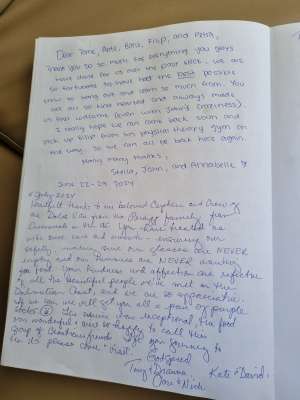 Dear Tone, Ante, Bura, Filip, and Petra,
Thank you so so much for everything you guys
have done for us over the past week. We are
so fortunate to have had the BEST possible
crew to hang out and learn so much from. You
are all so kind hearted and always made
us feel welcome (even with John's craziness).
I really hope we can come back soon and
pick up on physical therapy Gym on
the way, so we can all be back here again.
Many Many thanks,
Sheila, John, and Annabelle
June 22-29 2024
July 2024
Heartfelt thanks to our beloved Captain and Crew of
the Dolce from the family from
in the US. You have treated us
with such care and warmth - ensuring our
safety, making sure our glasses are NEVER
empty and our tummies are NEVER without
good food. Your kindness and affection are reflective
of all the beautiful people we've met on the
Dalmatian Coast, and we are so appreciative.
we will get you all a pair of purple
The service was exceptional, the food
was wonderful & we're so happy to call this
group of Croatians friends. your journey to
the US please come & visit.
Godspeed
Tony & Kate & David